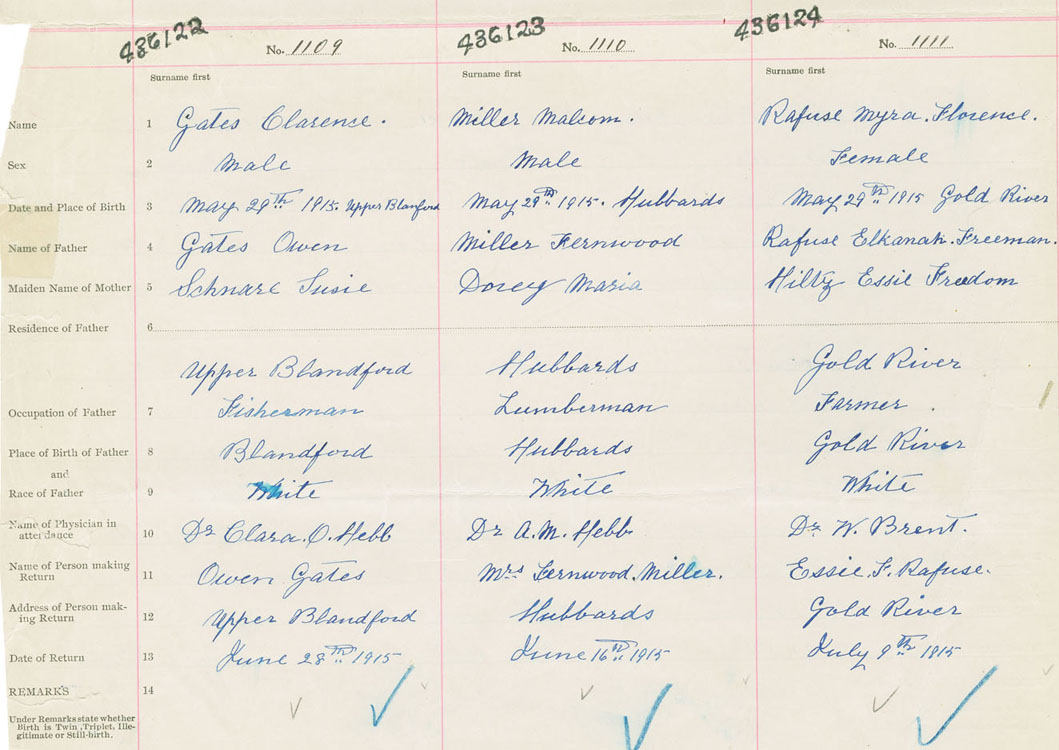 436122 436123 436124
No. 1109 No. 1110 No. 1111
Surname first Surname first Surname first
Name 1 Gates Clarence. Miller Malcom. Rafuse Myra. Florence.
Sex 2 Male Male Female
Date and Place of Birth 3 May 29th 1915. Upper Blanford May 29th 1915. Hubbards May 29th 1915 Gold River
Name of Father 4 Gates Owen Miller Fernwood Rafuse Elkanah. Freeman.
Maiden Name of Mother 5 Schnare Susie Dorey Maria Hiltz Essie Freedom
Residence of Father 6
Upper Blandford Hubbards Gold River
Occupation of Father 7 Fisherman Lumberman Farmer.
Place of Birth of Father 8 Blandford Hubbards Gold River
and
Race of Father 9 White White White
Name of Physician in
attendance 10 Dr Clara. O. Hebb Dr A. M. Hebb Dr. W. Brent.
Name of Person making
Return 11 Owen Gates Mrs Fernwood. Miller. Essie. F. Rafuse.
Address of Person mak-
ing Return 12 Upper Blandford Hubbards Gold River
Date of Return 13 June 28th 1915 June 16th 1915 July 9th 1915
REMARKS 14
Under Remarks state whether
Birth is Twin, Triplet, Ille-
gitimate or Still-birth.